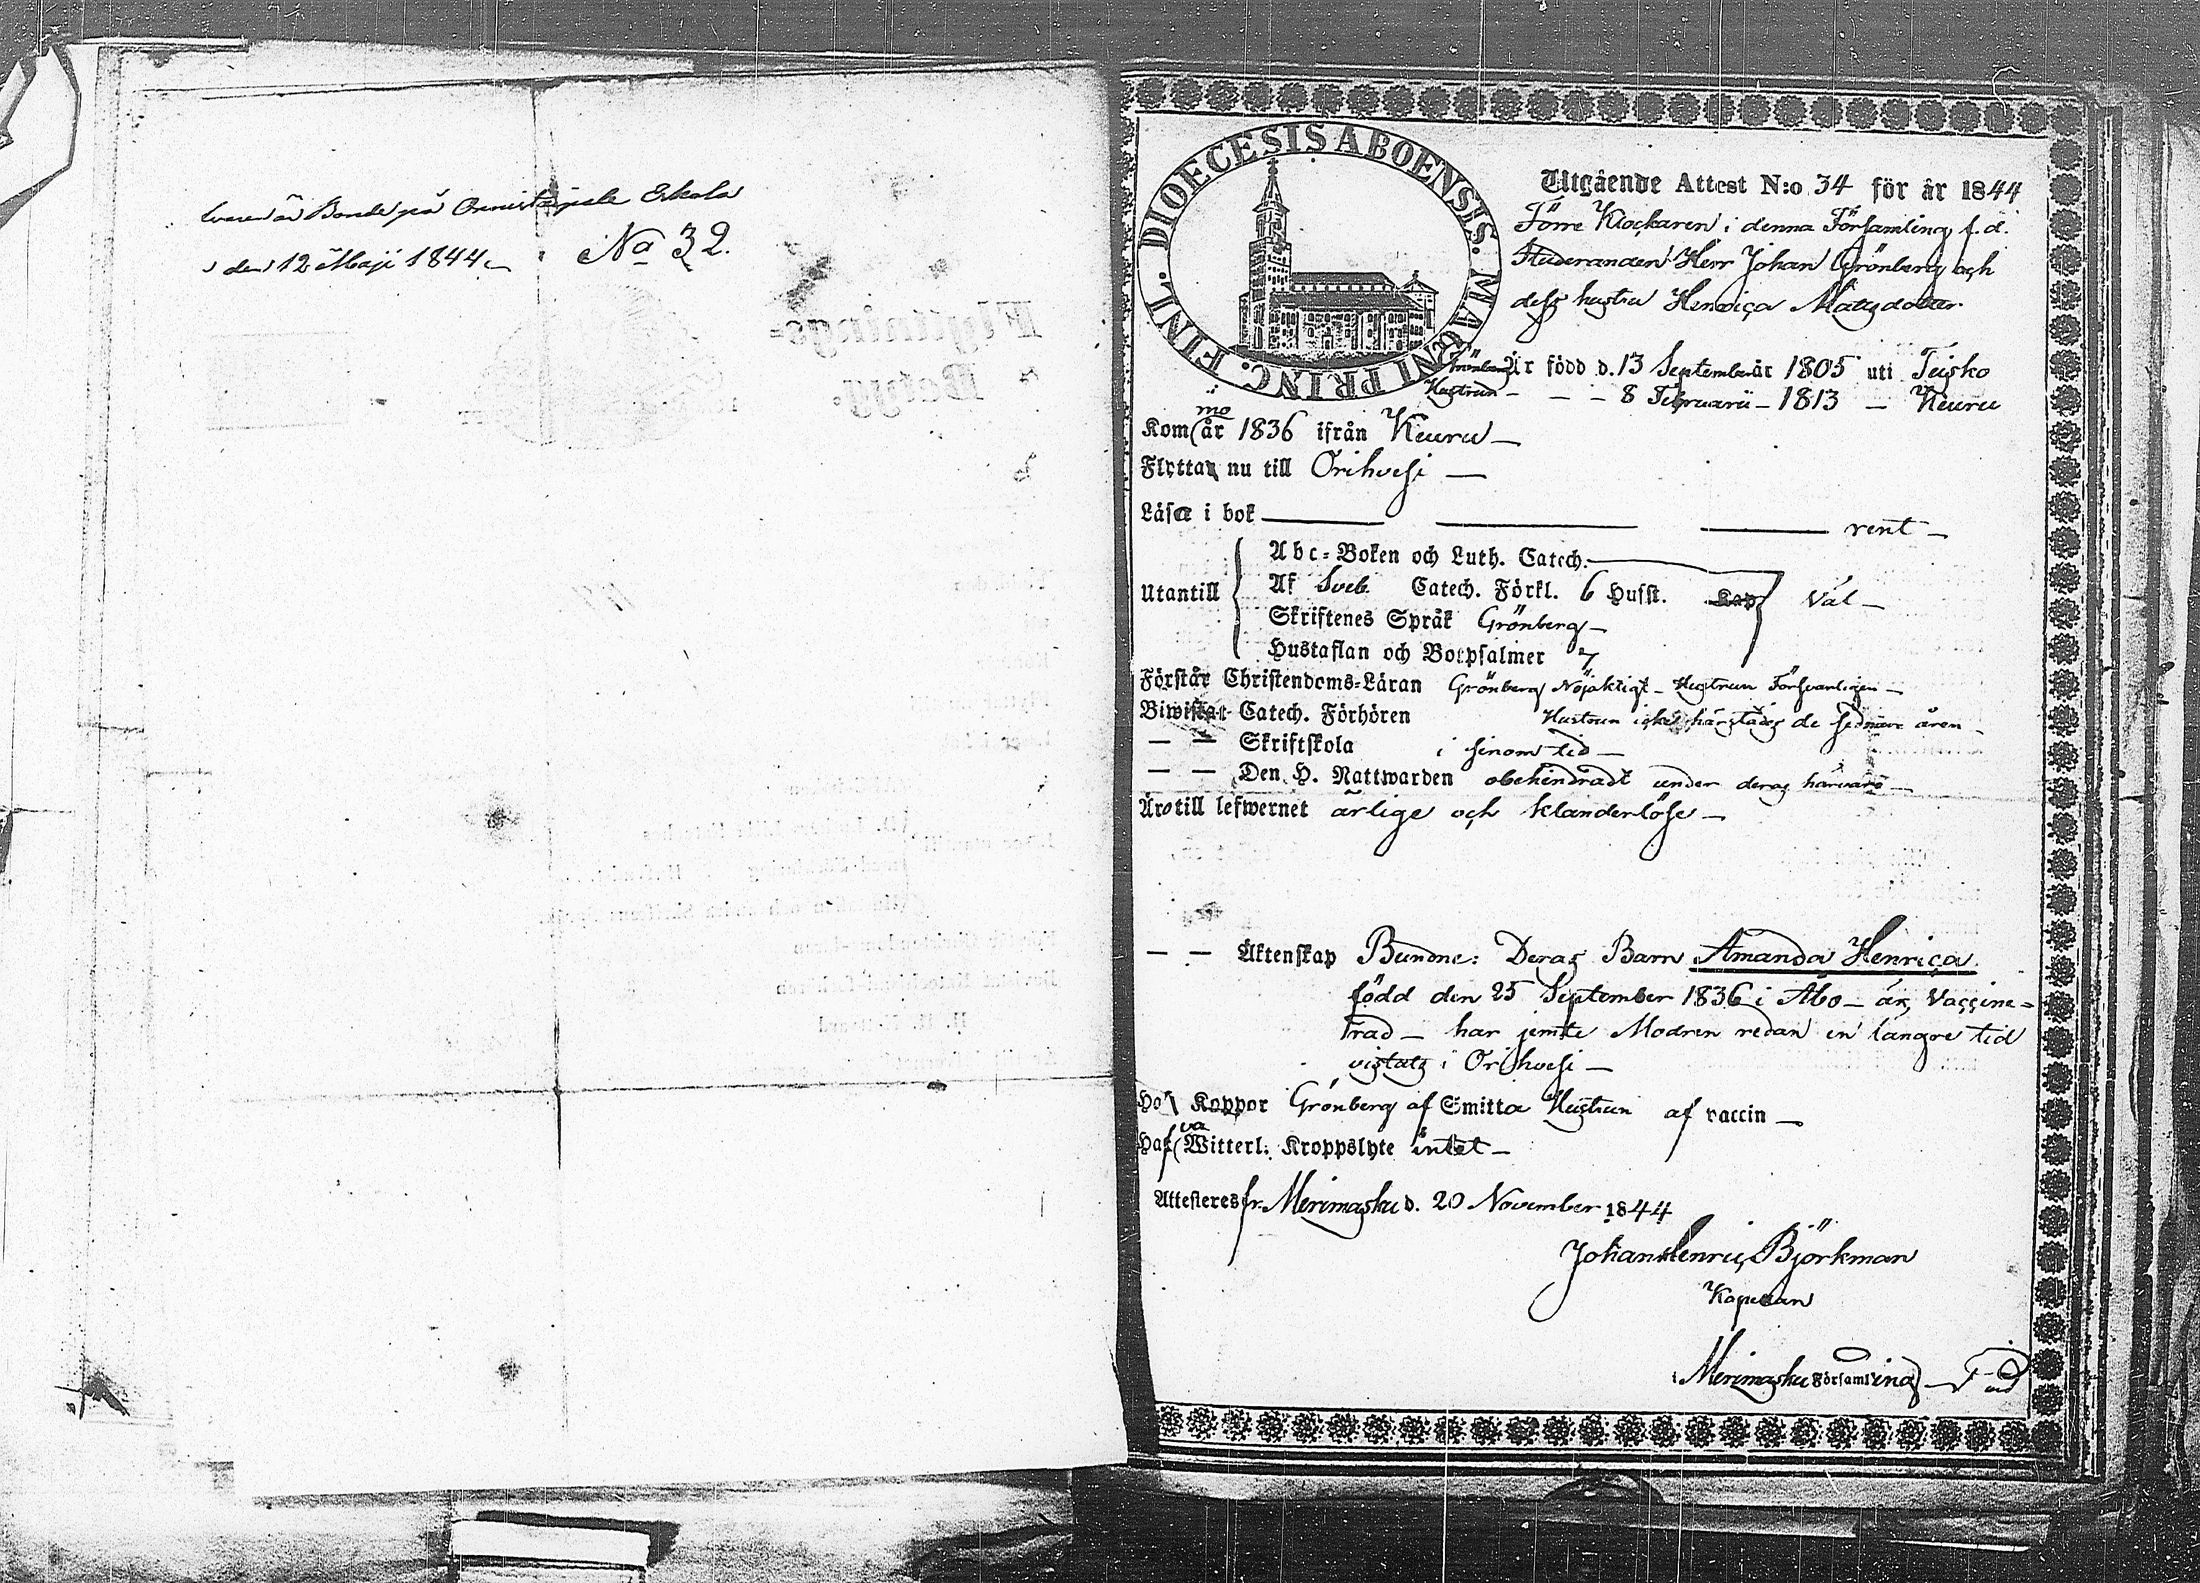 är Bonde på Erkola
den 12 Maji 1844
No 32.
Flyttnings-
Betyg.
DIOECESIS ABOENSIS. MAGNI PRINC. FINL.
Utgående Attest N:o 34 för år 1844
Förre Klockaren i denna Församling f. d.
Studeranden Herr Johan Grönberg och
dess hustru Henrica Matsdotter
Grönberg Är född d. 13 September år 1805 uti Teisko
Hustrun — — — 8 Februarii — 1813 — Keuru
Kommo år 1836 ifrån Keuru —
Flytta nu till Orihvesi —
Läsa i bok — — — rent —
Utantill
Abc-Boken och Luth. Catech.
Af Sveb. Catech. Förkl. 6 Hufst. Kap Väl —
Skriftenes Språk Grönberg —
Hustaflan och Botpsalmer 7
Förstår Christendoms-Läran Grönberg Nöjaktigt — Hustrun Försvarligen —
Biwistat Catech. Förhören Hustrun icke härstädes de sednare åren —
— — Skriftskola i sinom tid —
— — Den H. Nattwarden obehindradt under deras härvaro —
Äro till lefwernet ärlige och klanderlöse —
— — Äktenskap Bundne: Deras Barn Amanda Henrica
född den 25 September 1836 i Åbo — är Vaccine-
rad — har jemte Modren redan en längre tid
vistats i Orihvesi —
Haft Koppor Grönberg af Smitta Hustrun af vaccin —
Hafva Witterl: Kroppslyte intet —
Attesteres fr. Merimasku d. 20 November 1844
Johan Henric Björkman
Kapellan
i Merimasku Församling —